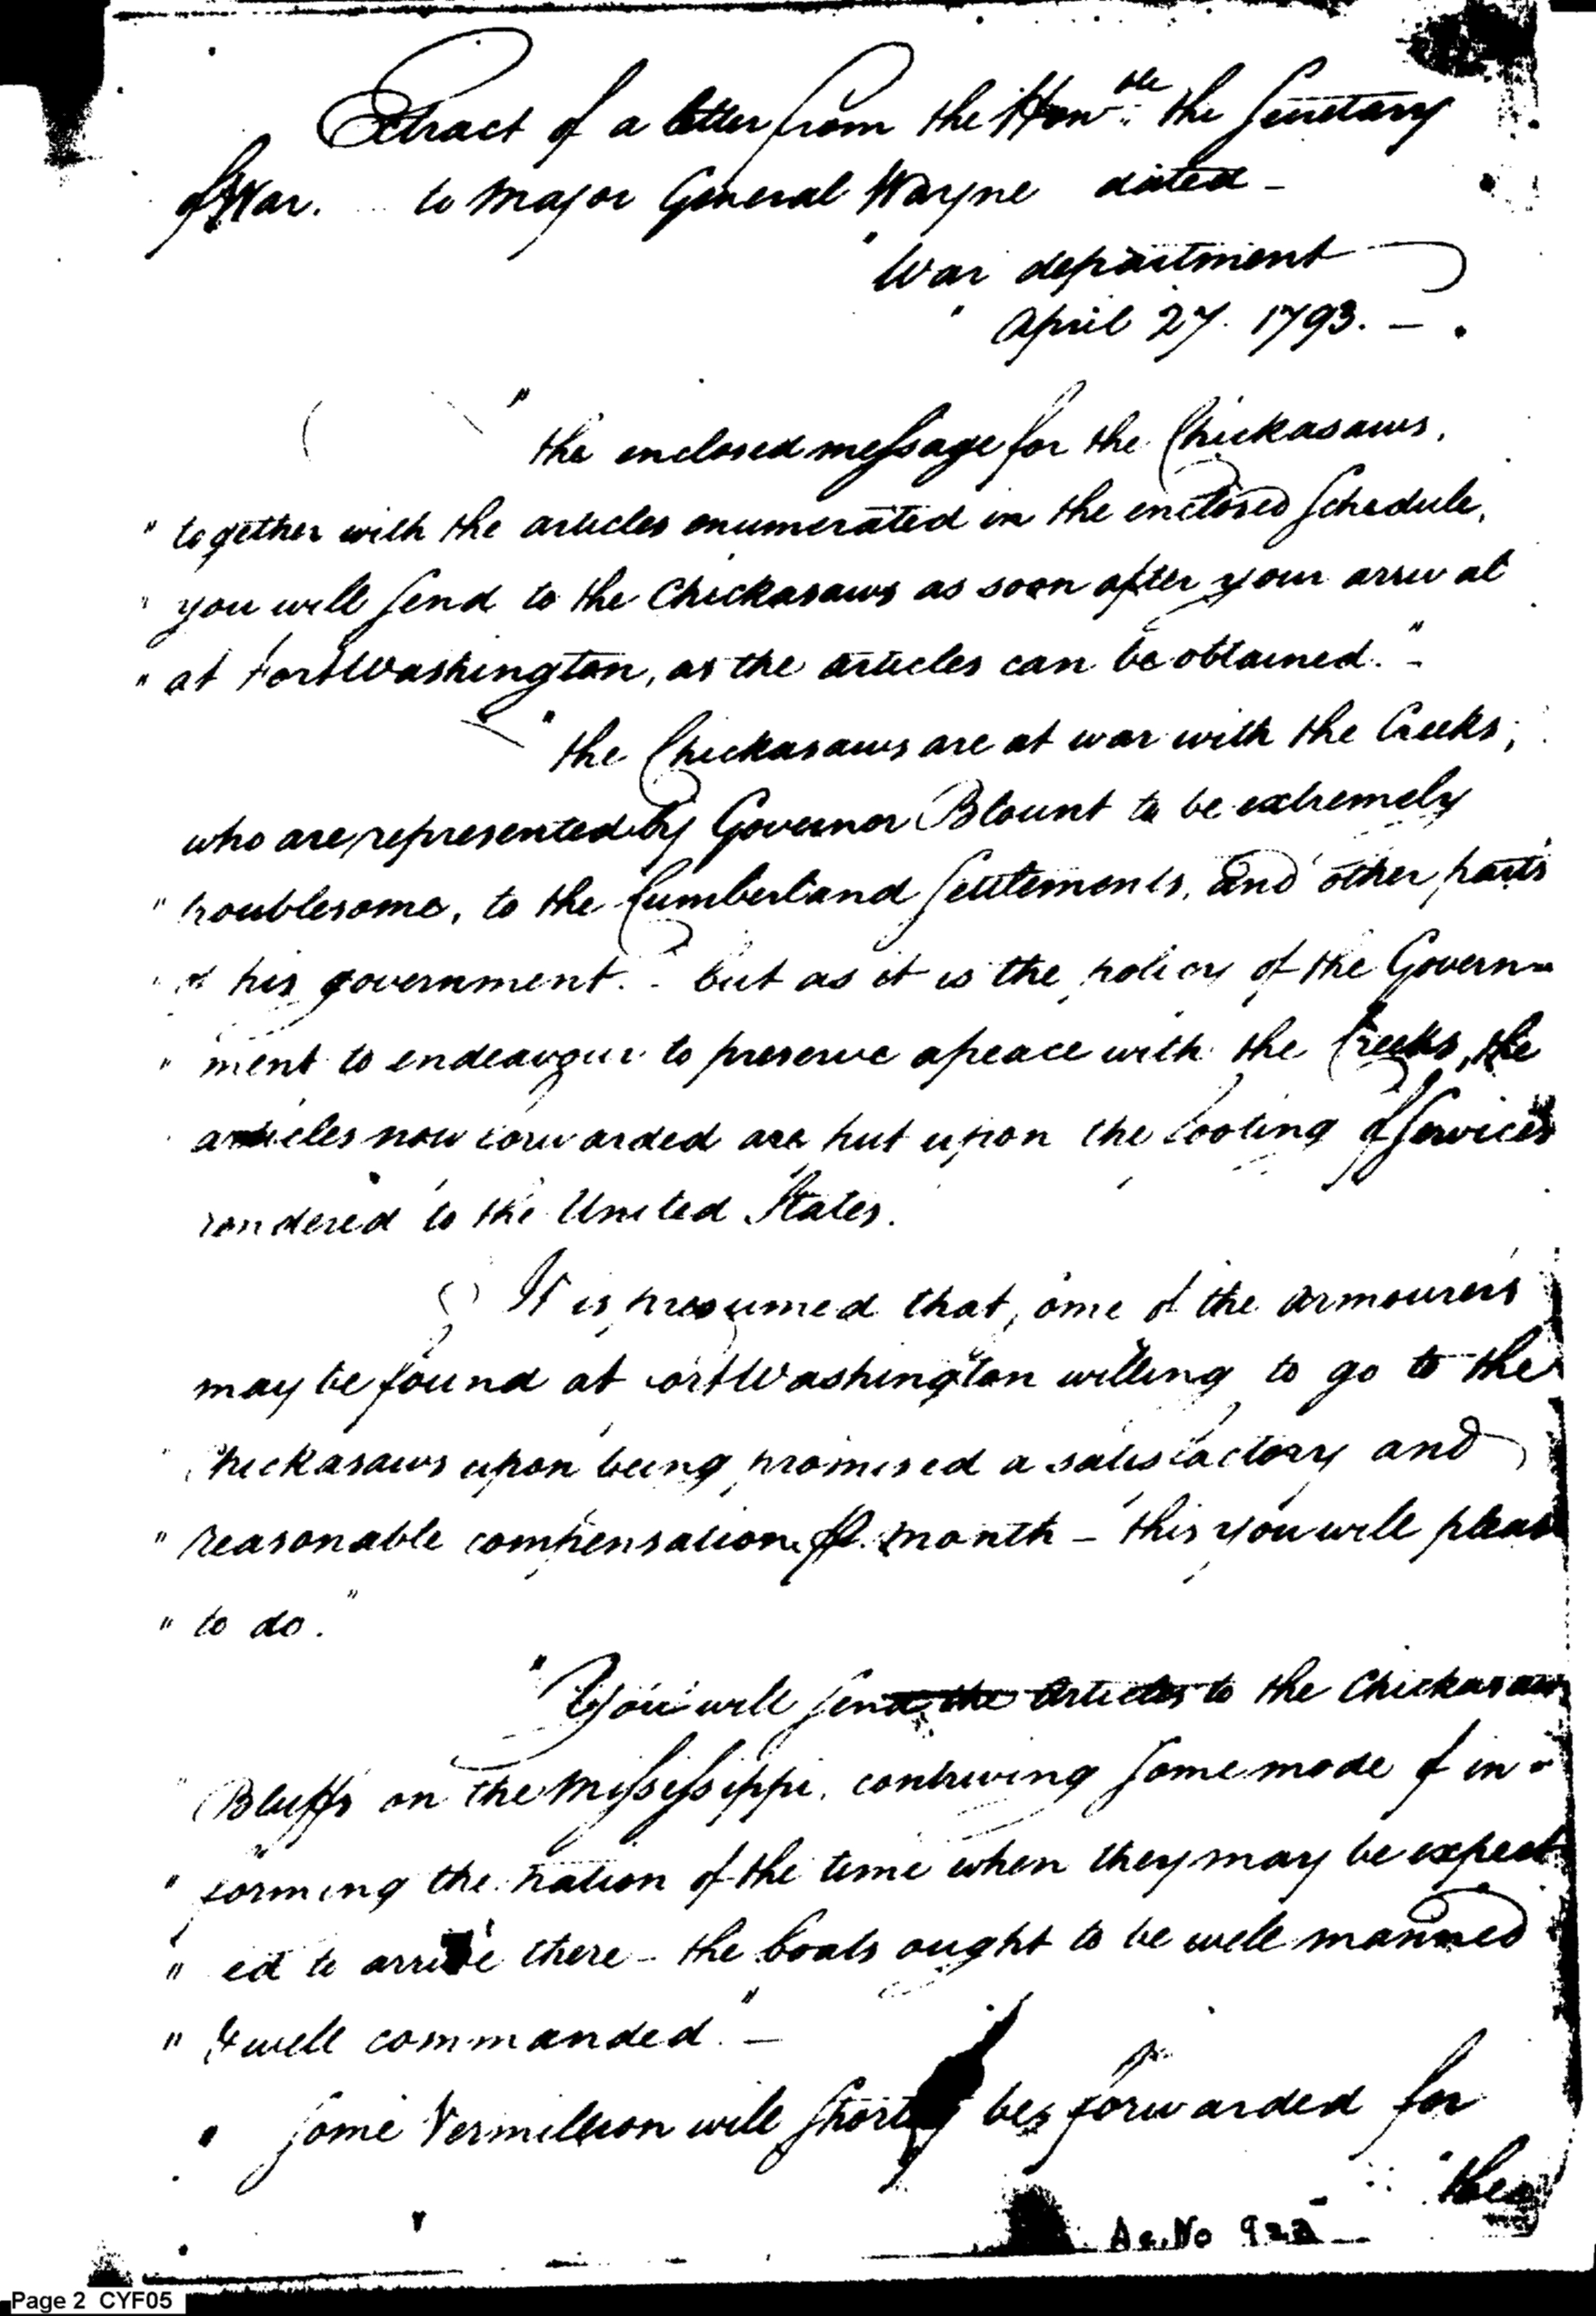 Extract of a letter from the Honble. the Secretary
of War. to Major General Wayne dated -
"War department
" April 27. 1793. - .
"the enclosed message for the Chickasaws,
" together with the articles enumerated in the enclosed Schedule,
" you will send to the Chickasaws as soon after your arrival
" at Fort Washington, as the articles can be obtained." -
"the Chickasaws are at war with the Creeks;
who are represented by Governor Blount to be extremely
" troublesome, to the Cumberland Settlements, and other parts
" of his government. - but as it is the policy of the Govern-
" ment to endeavour to preserve a peace with the Creeks, the
articles now forwarded are put upon the footing of Services
rendered to the United States.
It is presumed that some of the armourers
may be found at Fort Washington willing to go to the
" Chickasaws upon being promised a satisfactory and
" reasonable compensation pr. month - this you will please
" to do."
"You will send the articles to the Chickasaw
" Bluffs on the Mississippi, contriving some mode of in-
" forming the nation of the time when they may be expect
" ed to arrive there - the boats ought to be well manned
" & well commanded." -
" some Vermillion will shortly be forwarded for
" the
Ac. No 922
Page 2 CYF05